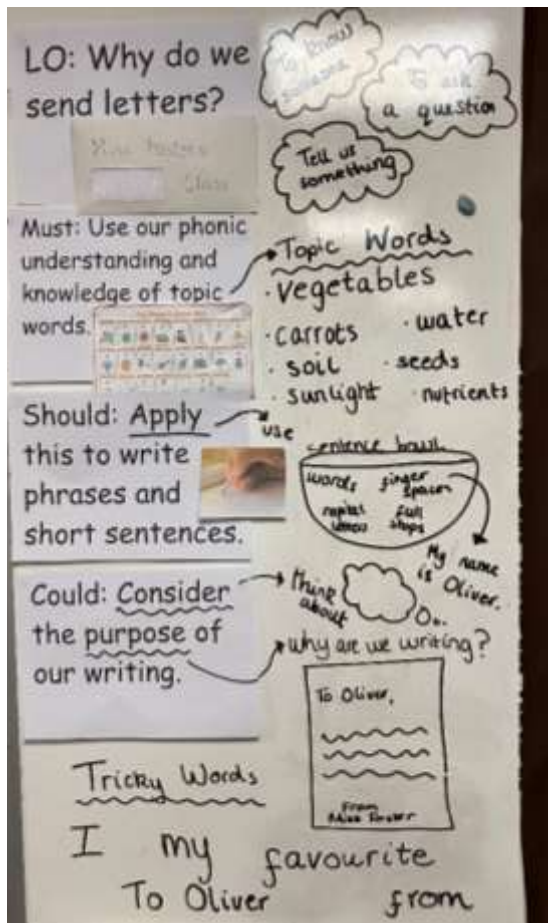 LO: Why do we
send letters?
To know
someone
To ask
a question
Tell us
something
Class
Must: Use our phonic
understanding and
knowledge of topic
words.
Topic Words
· vegetables
· carrots
· water
· soil
· seeds
· sunlight
· nutrients
Should: Apply
this to write
phrases and
short sentences.
use
sentence bowl
words
finger
spaces
capital
letters
full
stops
My name
is Oliver.
Could: Consider
the purpose of
our writing.
think
about
why are we writing?
To Oliver,
From
Miss
Tricky Words
I my favourite
To Oliver from